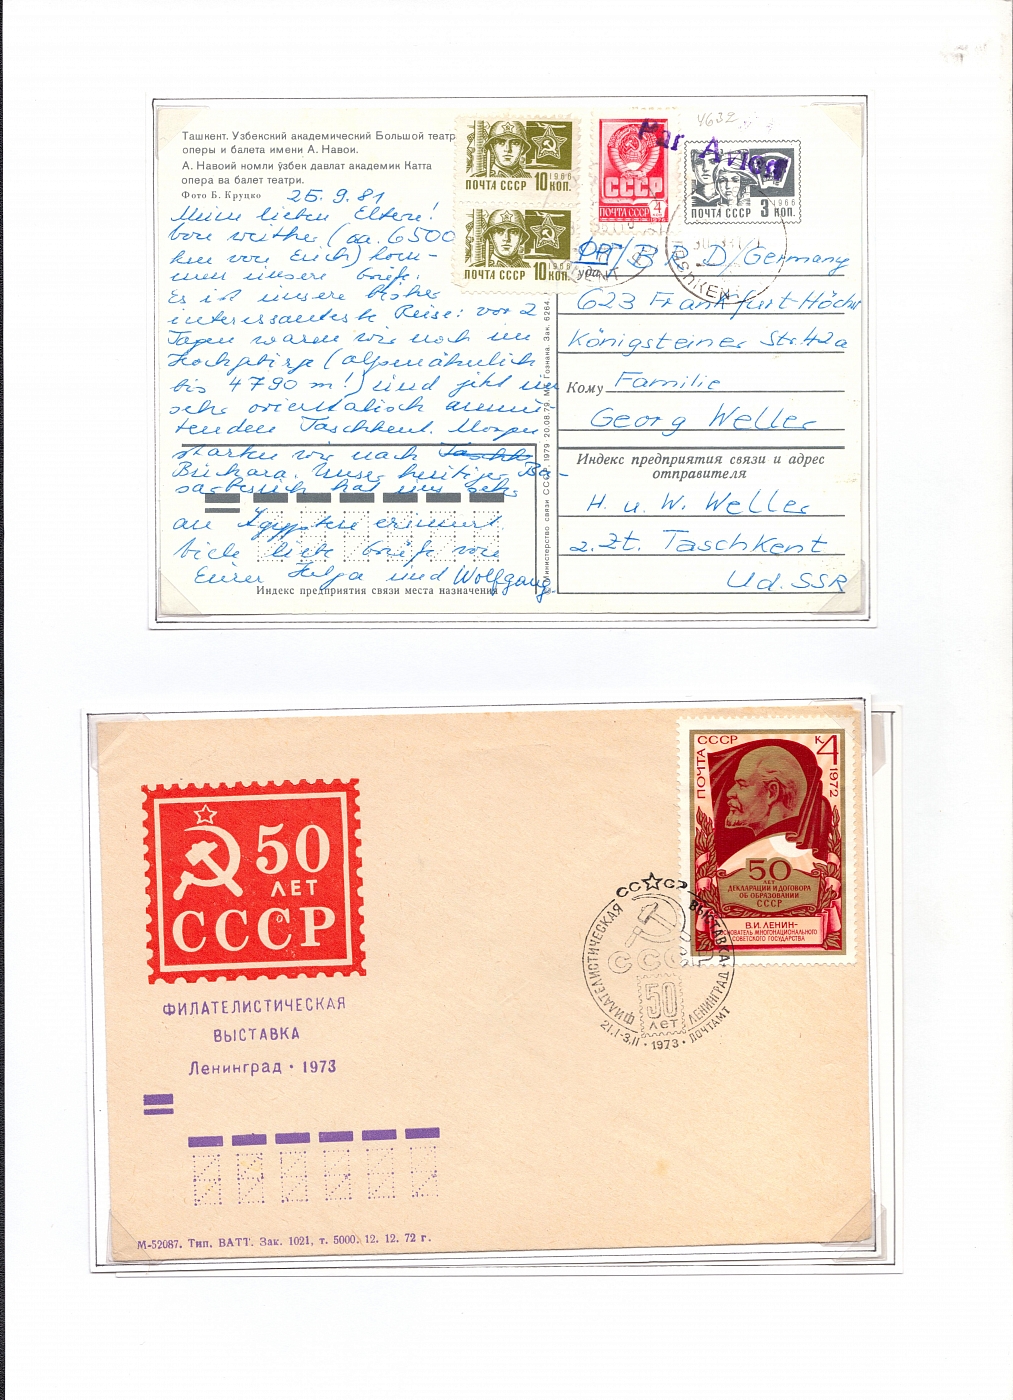 Ташкент. Узбекский академический Большой театр
оперы и балета имени А. Навои.
А. Навоий номли ўзбек давлат академик Катта
опера ва балет театри.
Фото Б. Круцко
25.9.81
Meine lieben Eltern!
von weither (ca. 6500
km von Euch) kom-
men unsere Grüße.
Es ist unsere bisher
interessanteste Reise: vor 2
Tagen waren wir noch im
Hochgebirge (alpenähnlich
bis 4790 m!) und jetzt im
sehr orientalisch anmu
tenden Taschkent. Morgen
starten wir nach
Buchara. Unser heutiger Ba-
sarbesuch hat uns sehr
an Ägypten erinnert
Viele liebe Grüße von
Eurer Helga und Wolfgang.
Индекс предприятия связи места назначения
Министерство связи СССР. 1979 20.08.79. МТ Гознака. Зак. 6264.
ПОЧТА СССР 10 КОП.
1966
ПОЧТА СССР 10 КОП.
1966
СССР
ПОЧТА СССР 4 КОП
1976
4632
Par Avion
1966
ПОЧТА СССР 3 КОП.
Куда
BRD/Germany
623 Frankfurt-Höchst
Königsteiner Str. 42a
Кому Familie
Georg Weller
Индекс предприятия связи и адрес
отправителя
H. u. W. Weller
z. Zt. Taschkent
UdSSR
50
ЛЕТ
СССР
ФИЛАТЕЛИСТИЧЕСКАЯ
ВЫСТАВКА
Ленинград • 1973
М-52087. Тип. ВАТТ. Зак. 1021, т. 5000. 12. 12. 72 г.
ПОЧТА СССР
К 4
1972
50
ЛЕТ
ДЕКЛАРАЦИИ И ДОГОВОРА
ОБ ОБРАЗОВАНИИ
СССР
В.И. ЛЕНИН-
ОСНОВАТЕЛЬ МНОГОНАЦИОНАЛЬНОГО
СОВЕТСКОГО ГОСУДАРСТВА
СССР
ФИЛАТЕЛИСТИЧЕСКАЯ
ВЫСТАВКА
СССР
50
лет
21.I-3.II • 1973 • ПОЧТАМТ
ЛЕНИНГРАД